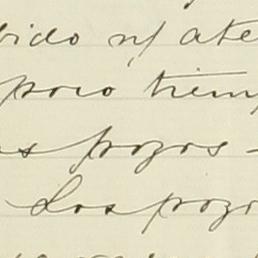 bido n/ ate
poco tiem
s pozos -
Los pozo